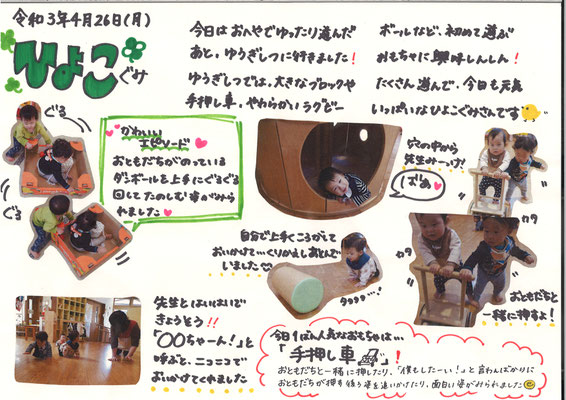 令和3年4月26日(月)
ひよこぐみ
今日はおへやでゆったり遊んだ
あと、ゆうぎしつに行きました!
ゆうぎしつでは、大きなブロックや
手押し車、やわらかいラグビー
ボールなど、初めて遊ぶ
おもちゃに興味しんしん!
たくさん遊んで、今日も元気
いっぱいなひよこぐみさんです
ぐる
ぐる
かわいい
エピソード
おともだちがのっている
ダンボールを上手にぐるぐる
回してたのしむ姿がみら
れました
穴の中から
先生みーっけ!
ばぁ
カタ
カタ
おともだちと
一緒に押すよ!
自分で上手くころがして
おいかけて…くりかえしあそんで
いました
タタタタ…!
先生とはいはいで
きょうそう!!
「〇〇ちゃーん!」と
呼ぶと、ニコニコで
おいかけてくれました
今日1ばん人気なおもちゃは…
「手押し車」!
おともだちと一緒に押したり、「僕もしたーい!」と言わんばかりに
おともだちが押す後ろ姿を追いかけたり、面白い姿がみられました